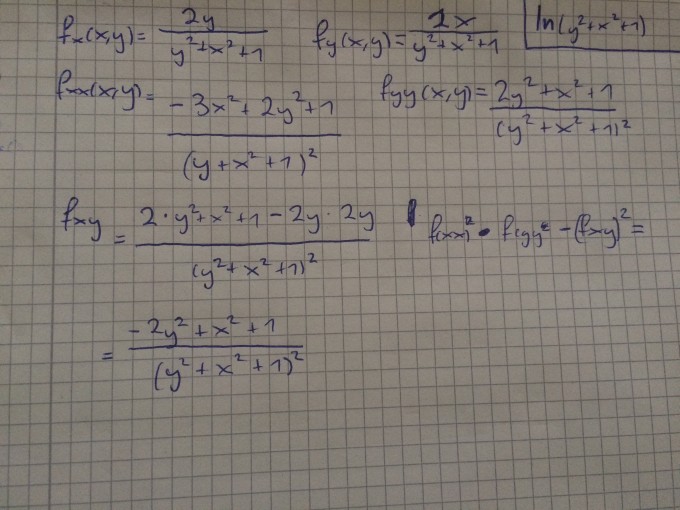 fx(x,y)= 2y / y²+x²+1   fy(x,y)= 2x / y²+x²+1   ln(y²+x²+1)
fxx(x,y)= -3x²+2y²+1 / (y+x²+1)²   fyy(x,y)= 2y²+x²+1 / (y²+x²+1)²
fxy = 2·y²+x²+1-2y·2y / (y²+x²+1)²   f(xx)²·f(yy² -(fxy)²=
= -2y²+x²+1 / (y²+x²+1)²